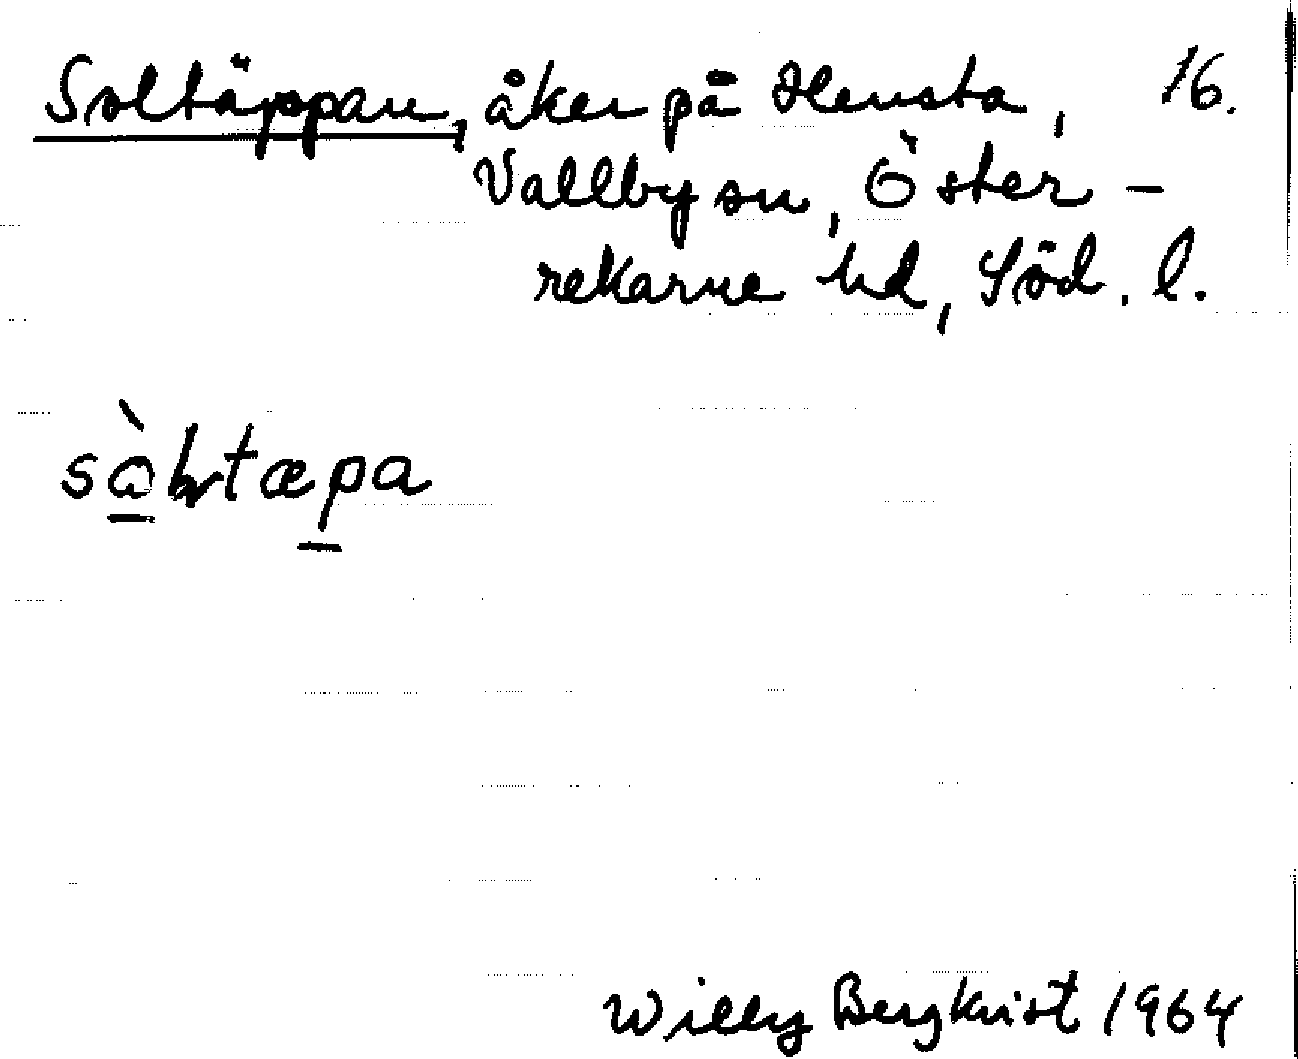 Soltäppan, åker på Hensta, 16.
Vallby sn, Öster-
rekarne hd, Söd. l.
Willy Bergkvist 1964